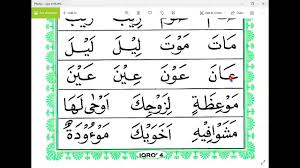 مَاتَ مَوْتَ لِيْلَ لَيْلَ
عَانَ عَوْنَ عِيْنَ عَيْنَ
مَوْعِظَةً لِزَوْجِكَ اَوْحٰى لَهَا
مَشَوْافِيْهِ اَخَوَيْكَ مَوْءُوْدَةُ
IQRO' 4